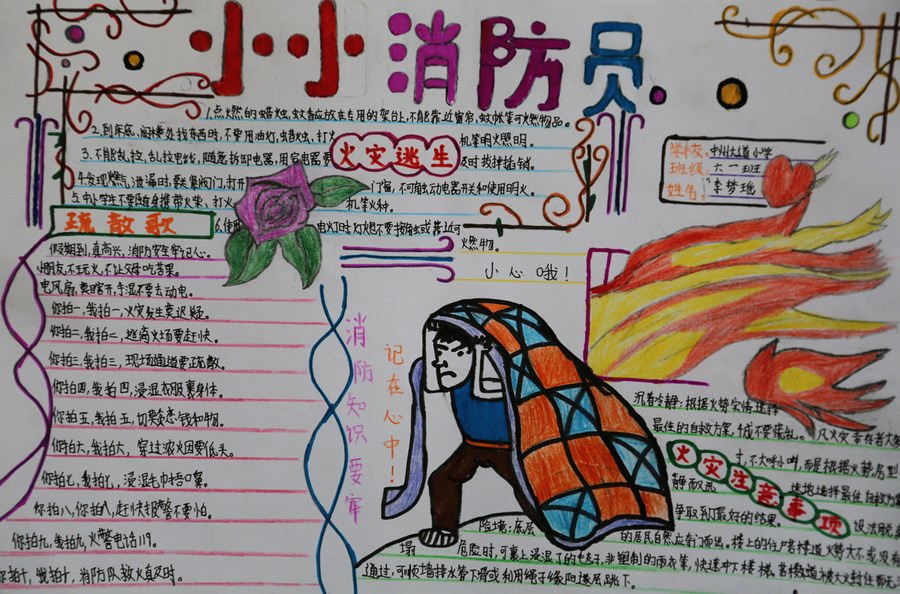 小小消防员
1.点燃的蜡烛,蚊香应放在专用的架台上,不能靠近窗帘,蚊帐等可燃物品。
2.到床底,阁楼处找东西时,不要用油灯,蜡烛,打火机等明火照明。
3.不能乱拉,乱拉电线,随意拆卸电器,用完电器要及时拔掉插销。
4.发现燃气泄漏时,要关紧阀门,打开门窗,不可触动电器开关和使用明火。
5.中小学生不要随身携带火柴,打火机等火种。
6.使用电灯时灯炮不要接触或靠近可燃物。
火灾逃生
小心哦!
学校:中州大道小学
班级:六一班
姓名:李梦瑶
疏散歌
假期到,真高兴,消防安全牢记心。
小朋友,不玩火,不让父母吃苦果。
电风扇,要避开,手湿不要去动电。
你拍一,我拍一,火灾发生莫迟疑。
你拍二,我拍二,逃离火场要赶快。
你拍三,我拍三,现场通道要疏散。
你拍四,我拍四,浸湿衣服裹身体。
你拍五,我拍五,切莫贪恋钱和物。
你拍六,我拍六,穿过浓火因要低头。
你拍七,我拍七,浸湿毛巾捂口鼻。
你拍八,你拍八,赶快报警不要怕。
你拍九,我拍九,火警电话119。
你拍十,我拍十,消防队救火真及时。
消防知识要牢
记在心中!
火灾注意事项
沉着冷静:根据火势实情选择
最佳的自救方案,千万不要慌乱。
争取到最好的结果。
险境:底层
的居民自然应夺门而出。楼上的住户若楼道火势不大或没有
塌危险时,可裹上浸湿了的毯子,非塑制的雨衣等,快速冲下楼梯。若楼道被大火封住而无
通过,可顺墙排水管下滑或利用绳子缘阳逐层跳下。